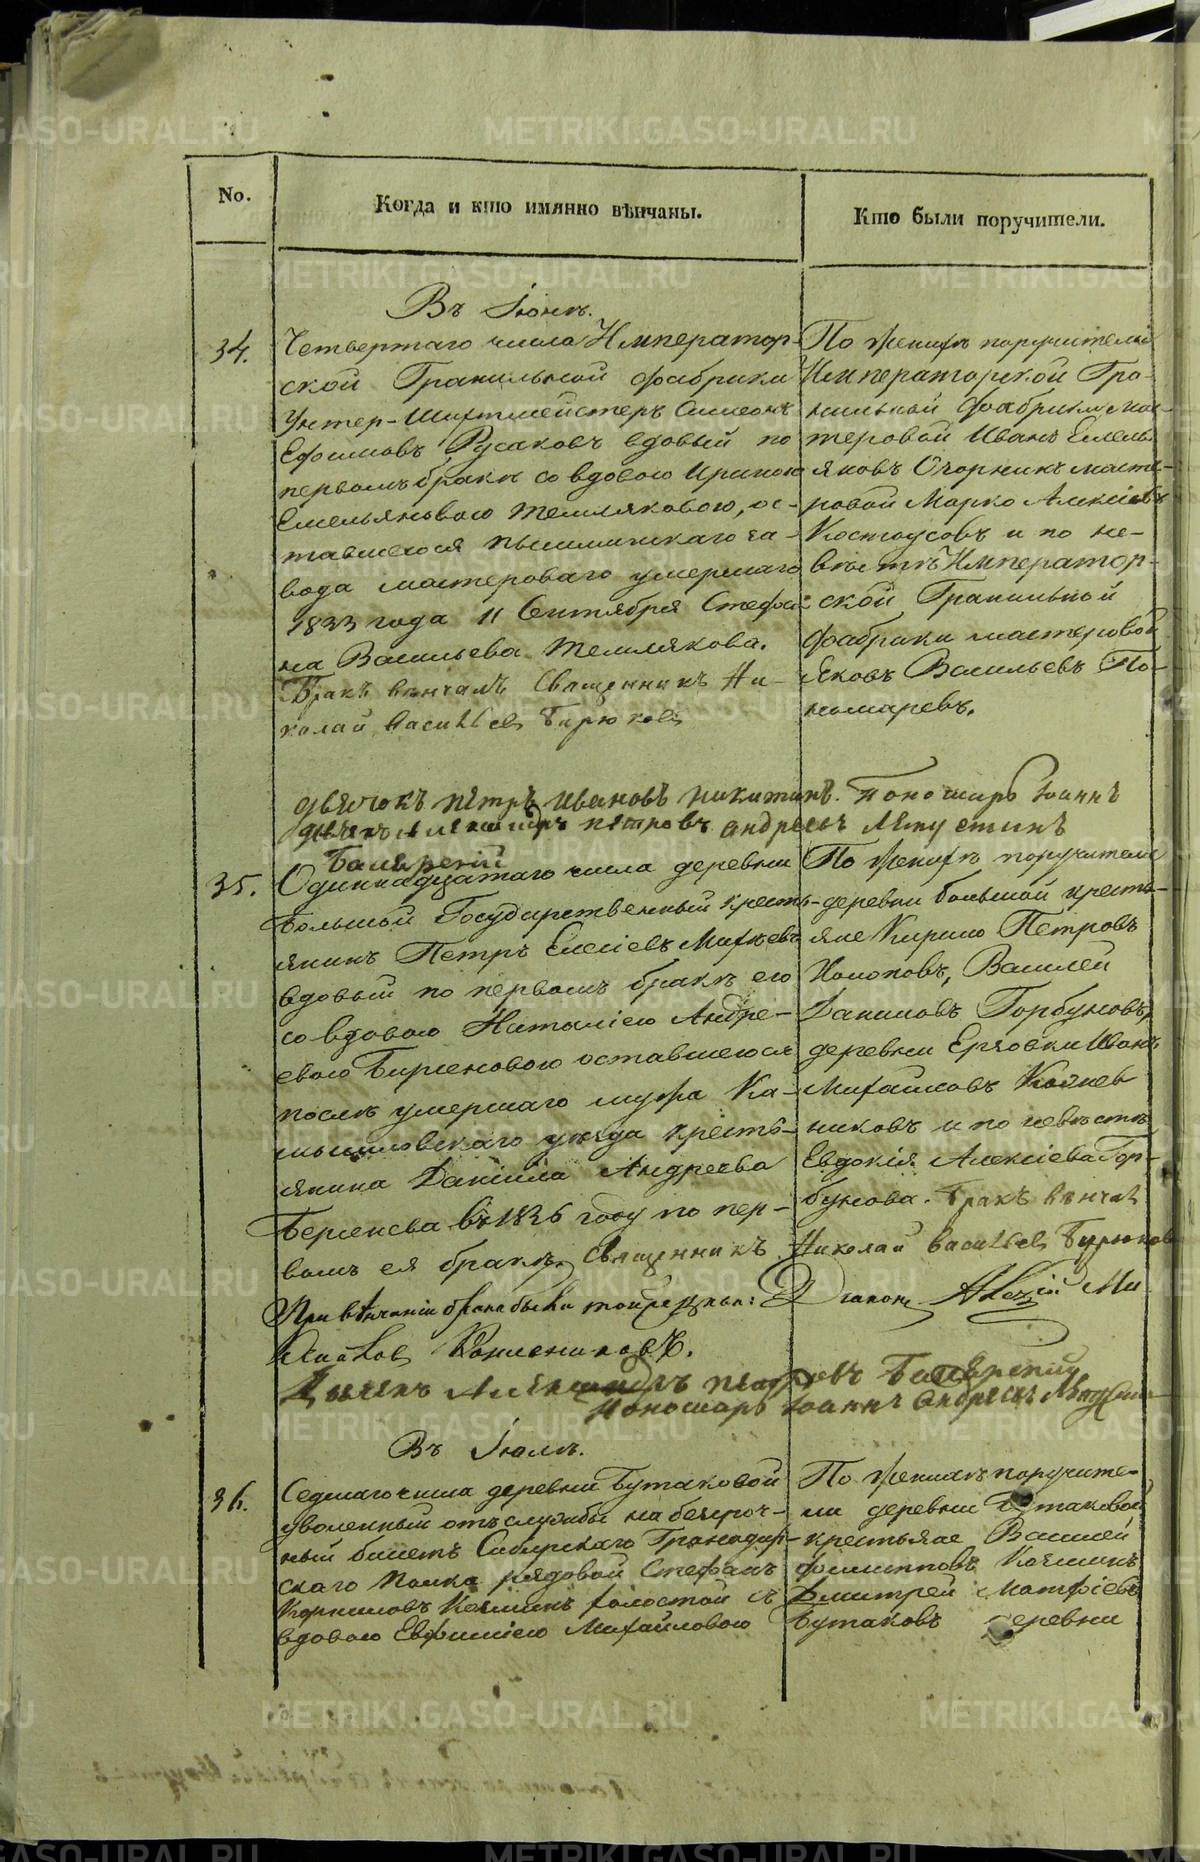 No.
Когда и кто имянно вѣнчаны.
Кто были поручители.
Въ Іюнѣ.
34.
Четвертаго числа Император-
ской Гранильной фабрики
Унтер-Шихтмейстеръ Симеонъ
Ефимовъ Русаковъ вдовый по
первомъ бракѣ со вдовою Ириною
Емельяновою Темляковою, ос-
тавшеюся Пышминскаго за-
вода мастероваго умершаго
1833 года 11 Сентября Стефа-
на Васильева Темлякова.
Бракъ вѣнчалъ Священникъ Ни-
колай Васильев Бирюков
По женихѣ поручители
Императорской Гра-
нильной фабрики мас-
теровой Иванъ Емель
яновъ Огорник масте-
ровой Марко Алексѣевъ
Костоусовъ и по не-
вѣстѣ Император-
ской Гранильной
фабрики мастеровой
Яковъ Васильевъ По-
номаревъ.
Дьячокъ Петръ Ивановъ Никитинъ. Пономарь Іоаннъ
Дьячекъ Александръ Петровъ Андреевъ
Баиярский
35.
Одиннадцатаго числа деревни
Большой Государственный кресть-
янинъ Петръ Елесіевъ Михѣевъ
вдовый по первомъ бракѣ его
со вдовою Наталіею Андре-
евою Бирсеновою оставшеюся
послѣ умершаго мужа Ка-
мышловскаго уѣзда кресть-
янина Даніила Андреева
Берсенева въ 1826 году по пер-
вомъ ея бракѣ. Священникъ Николай Васильев Бирюков
По женихѣ поручители
деревни большой кресть-
яне Кирило Петровъ
Холоповъ, Василей
Даниловъ Горбуновъ,
деревни Ерзовки Иванъ
Михайловъ Кожев
никовъ и по невѣстѣ
Евдокія Алексіева Гор-
бунова. Бракъ вѣнчал
При вѣнчаніи брака были Диакон Алексій Ми
хайлов
Дьячекъ Александръ Петровъ Баиярский
Пономарь Іоаннъ Андреевъ
Въ Іюлѣ.
36.
Седмаго числа деревни Бутаковой
уволенный отъ службы на безсроч-
ный билетъ Сибирскаго Гранадир-
скаго Полка рядовой Стефанъ
Корниловъ Козминъ холостой съ
вдовою Евфиміею Михайловою
По женихѣ поручите-
ли деревни Бутаковой
крестьяне Василей
Филипповъ Козминъ
Дмитрей Матфіевъ
Бутаковъ деревни